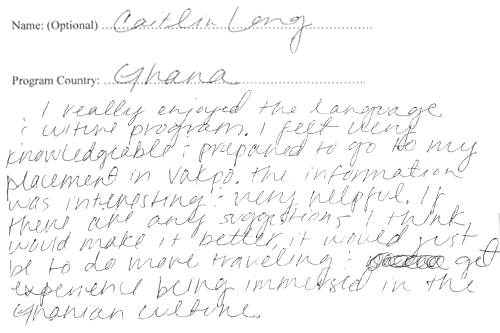 Name: (Optional) Caitlin Long
Program Country: Ghana
I really enjoyed the language
& culture program. I felt very
knowledgeable & prepared to go to my
placement in Vakpo. the information
was interesting & very helpful. If
there are any suggestions I think
would make it better, it would just
be to do more traveling & get
experience being immersed in the
Ghanian culture.